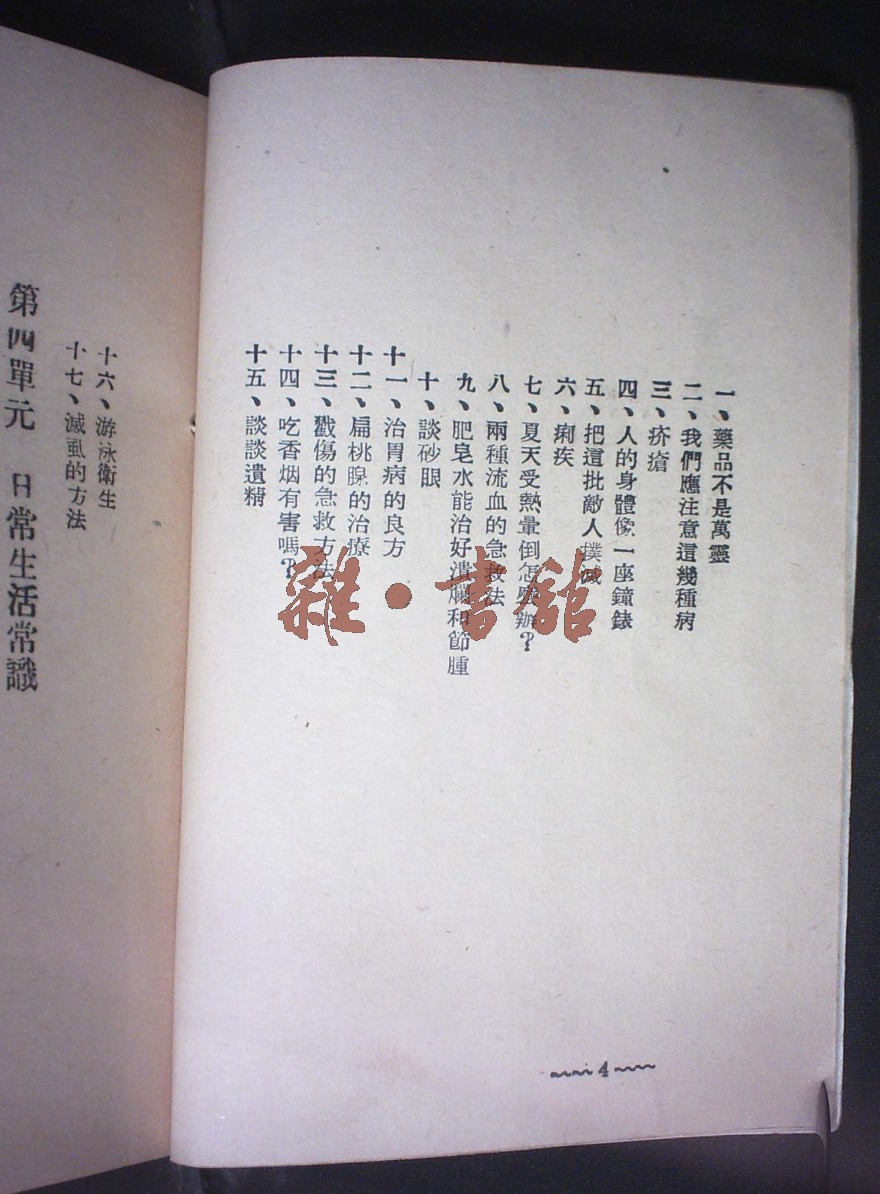 一、藥品不是萬靈
二、我們應注意這幾種病
三、疥瘡
四、人的身體像一座鐘錶
五、把這批敵人撲滅
六、痢疾
七、夏天受熱暈倒怎麼辦？
八、兩種流血的急救法
九、肥皂水能治好潰爛和節腫
十、談砂眼
十一、治胃病的良方
十二、扁桃腺的治療
十三、戳傷的急救方法
十四、吃香烟有害嗎？
十五、談談遺精
4
十六、游泳衛生
十七、滅虱的方法
第四單元 日常生活常識
雜·書館